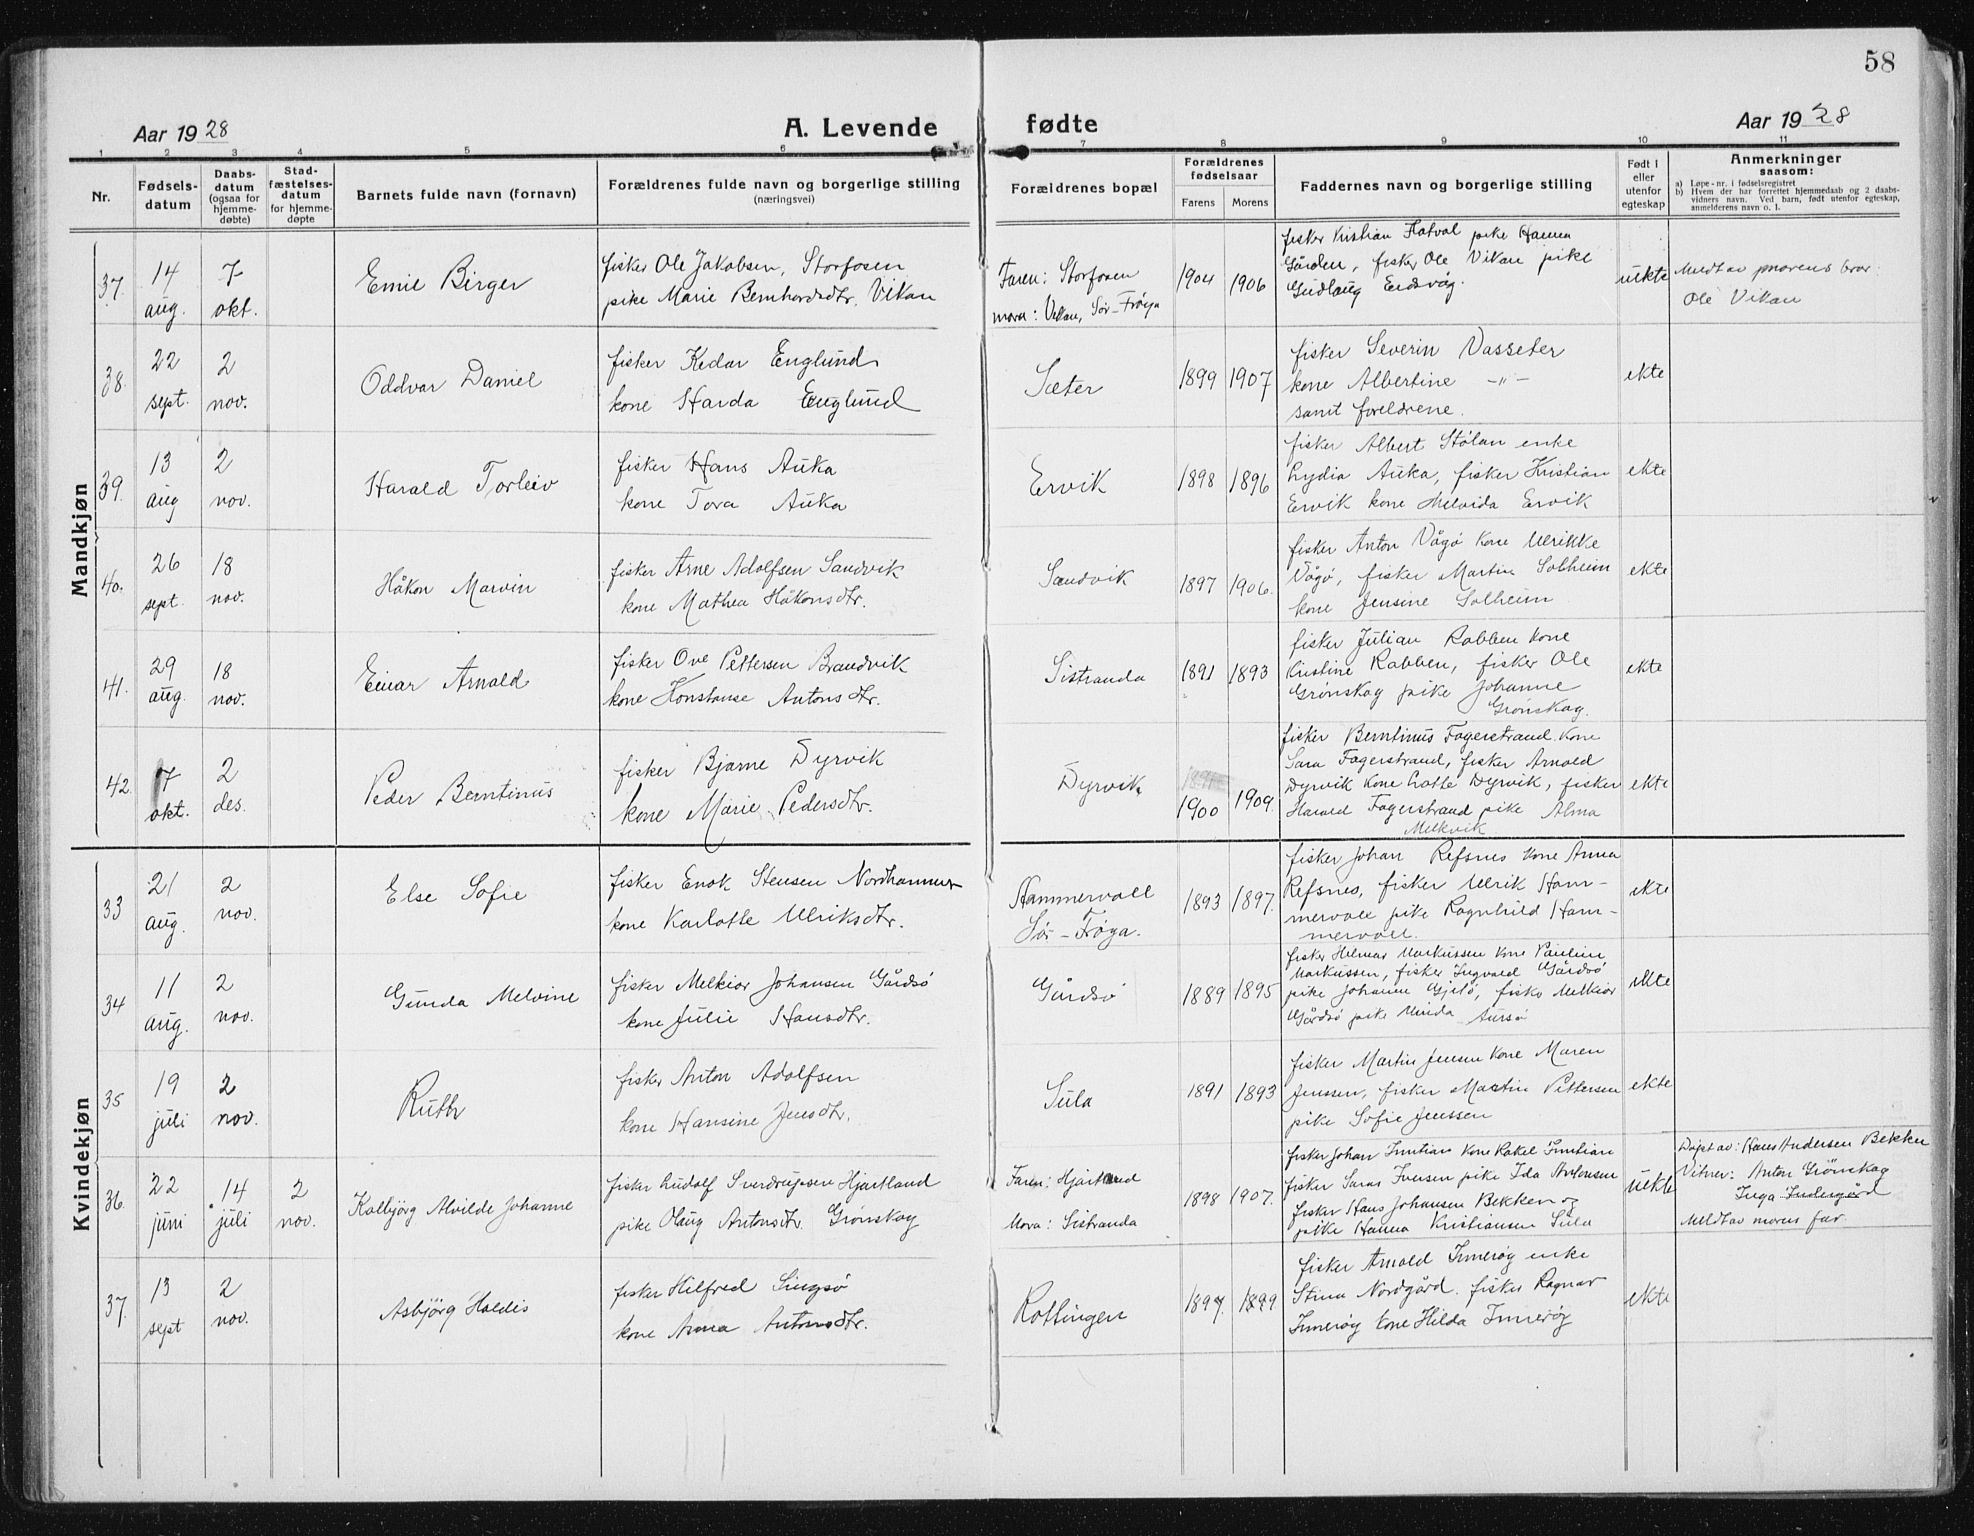 58
Aar 1928
A. Levende fødte
Aar 1928
1 2 3 4 5 6 7 8 9 10 11
Nr.
Fødsels-
datum
Daabs-
datum
(ogsaa for
hjemme-
døbte)
Stad-
fæstelses-
datum
for hjemme-
døpte
Barnets fulde navn (fornavn)
Forældrenes fulde navn og borgerlige stilling
(næringsvei)
Forældrenes bopæl
Forældrenes
fødselsaar
Farens Morens
Faddernes navn og borgerlige stilling
Født i
eller
utenfor
egteskap
Anmerkninger
saasom:
a) Løpe-nr. i fødselsregistret
b) Hvem der har forrettet hjemmedaab og 2 daabs-
vidners navn. Ved barn, født utenfor egteskap,
anmelderens navn o. l.
Mandkjøn
37.
14
aug.
7
okt.
Emil Birger
fisker Ole Jakobsen, Storfosen
pike Marie Bernhardsdtr. Vikan
Faren: Storfosen
mora: Vikan, Sør-Frøya
1904 1906
fisker Kristian Hatval pike Hanna
Gården, fisker Ole Vikan pike
Gudlaug Eidsvåg.
uekte
Meldt av morens bror:
Ole Vikan
38.
22
sept.
2
nov.
Oddvar Daniel
fisker Kedar Englund
kone Harda Englund
Sæter
1899 1907
fisker Severin Vasseter
kone Albertine -"-
samt foreldrene.
ekte
39.
13
aug
2
nov.
Harald Torleiv
fisker Hans Auka
kone Tora Auka
Ervik
1898 1896
fisker Albert Stølan enke
Lydia Auka, fisker Kristian
Ervik kone Melvida Ervik
ekte
40.
26
sept.
18
nov.
Håkon Marvin
fisker Arne Adolfsen Sandvik
kone Mathea Håkonsdtr.
Sandvik
1897 1906.
fisker Anton Vågø kone Ulrikke
Vågø, fisker Martin Solheim
kone Jensine Solheim
ekte
41.
29
aug.
18
nov.
Einar Arnald
fisker Ove Pettersen Brandvik
kone Konstanse Antonsdtr.
Sistranda
1891 1893
fisker Julian Rabben kone
Kristine Rabben, fisker Ole
Grønskag pike Johanne
Grønskag.
ekte
42.
7
okt.
2
des.
Peder Berntinus
fisker Bjarne Dyrvik
kone Marie Pedersdtr.
Dyrvik
1900 1909.
fisker Berntinus Fagerstrand kone
Sara Fagerstrand, fisker Arnold
Dyrvik kone Lotte Dyrvik, fisker
Harald Fagerstrand pike Alma
Melkvik
ekte
Kvindekjøn
33
21
aug.
2
nov.
Else Sofie
fisker Enok Stensen Nordhammer
kone Karlotte Ulriksdtr.
Hammervall
Sør-Frøya.
1893 1897.
fisker Johan Refsnes kone Anna
Refsnes, fisker Ulrik Ham-
mervall pike Ragnhild Ham-
mervall.
ekte
34
11
aug.
2
nov.
Gunda Melvine
fisker Melkior Johansen Gårdsø
kone Julie Hansdtr.
Gårdsø
1889 1895
fisker Helmar Markussen kone Pauline
Markussen, fisker Ingvald Gårdsø
pike Johanna Gjelø, fisker Melkior
Gårdsø pike Minda Aursø
ekte
35
19
juli
2
nov.
Ruth
fisker Anton Adolfsen
kone Hansine Jensdtr.
Sula
1891 1893
fisker Martin Jensen kone Maren
Jenssen, fisker Martin Pettersen
pike Sofie Jenssen
ekte
36.
22
juni
14
juli
2
nov.
Kolbjørg Alvilde Johanne
fisker Ludolf Sverdrupsen Hjartland
pike Olaug Antonsdtr. Grønskag
Faren: Hjartland
Mora: Sistranda
1898 1907.
fisker Johan kone Rakel
fisker pike Ida
fisker Hans Johansen Bekken og
pike Hanna Kristiansen Sula
uekte
Døpt av: Hans Andersen Bekken
Vitner: Anton Grønskag
Inga Indergård
Meldt av morens far.
37.
13
sept
2
nov.
Asbjörg Haldis
fisker Hilfred Singsø
kone Anna Antonsdtr.
Rottingen
1897. 1899
fisker Arnold Innerøy enke
Stina Nordgård. fisker Ragnar
Innerøy kone Hilda Innerøy
ekte